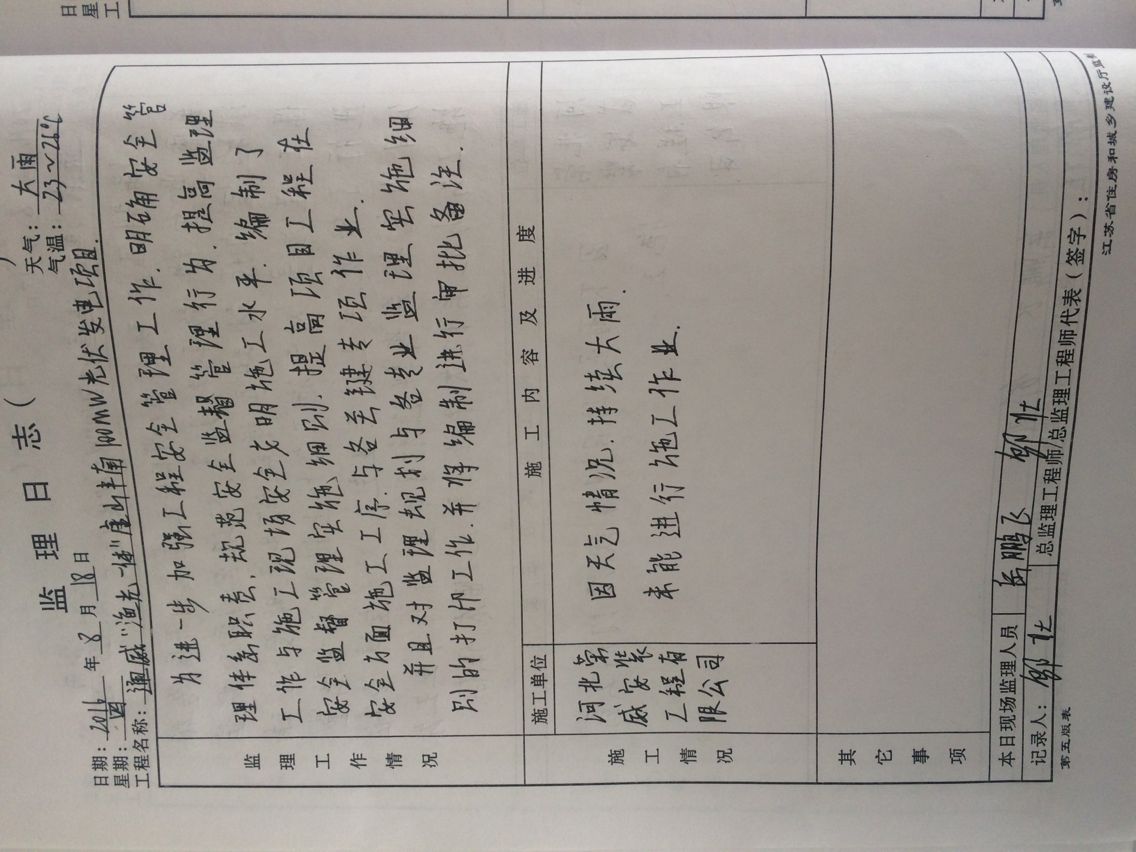 监理日志(
日期：2016年8月18日 天气：大雨
星期：四 气温：23～26℃
工程名称：通威"渔光一体"唐山丰南100MW光伏发电项目.
监理工作情况
为进一步加强工程安全管理工作.明确安全管
理体系职责,规范安全监督管理行为.提高监理
工作与施工现场安全文明施工水平.编制了
安全监督管理实施细则.提高项目工程在
安全方面施工工序.与各关键专项作业.
并且对监理规划与各专业监理实施细
则的打印工作.并将编制进行审批备注.
施工情况
施工单位 施工内容及进度
河北
威安装
工程有
限公司
因天气情况.持续大雨.
未能进行施工作业.
其它事项
本日现场监理人员 岳鹏飞 邹壮
记录人：邹壮 总监理工程师/总监理工程师代表(签字)：
第五版表 江苏省住房和城乡建设厅监